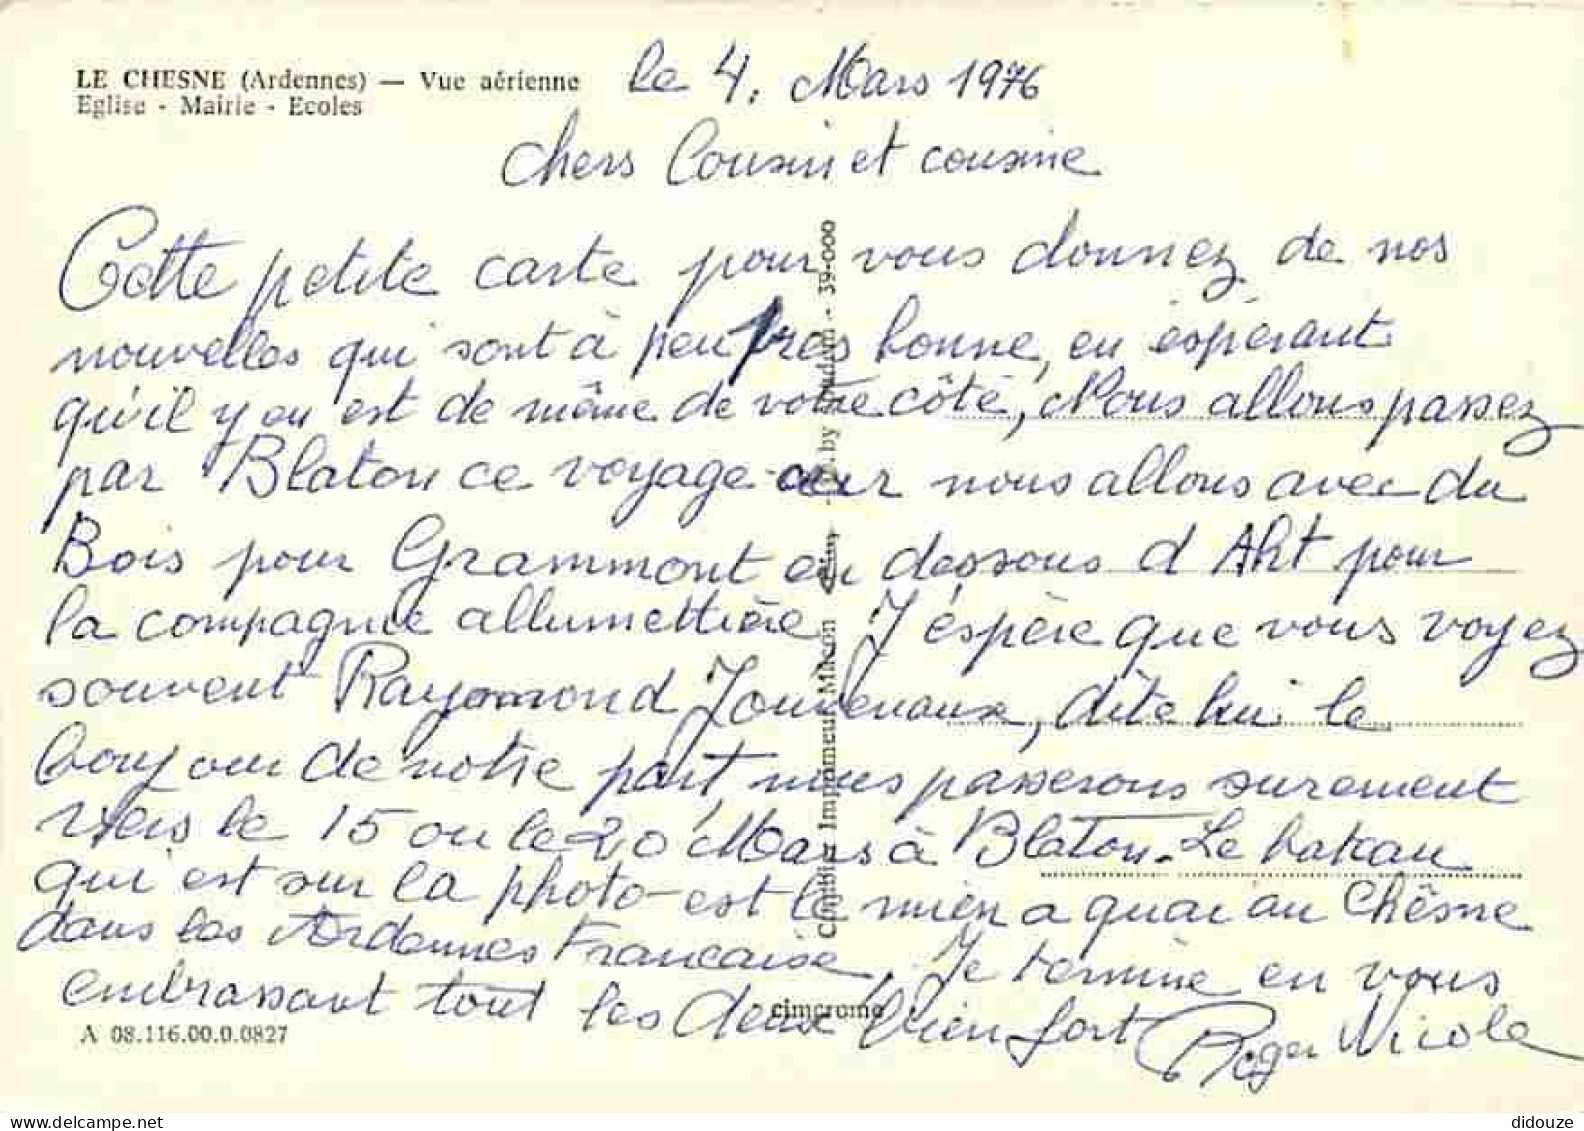 LE CHESNE (Ardennes) — Vue aérienne
Eglise - Mairie - Ecoles
le 4. Mars 1976
chers Cousin et cousine
Cette petite carte pour vous donnez de nos
nouvelles qui sont à peu près bonne, en éspérant
qu'il y en est de même de votre côté, Nous allons passez
par Blaton ce voyage car nous allons avec du
Bois pour Grammont en dessous d'Aht pour
la compagnie allumettière J'éspère que vous voyez
souvent Raymond, dite lui le
bonjour de notre part, nous passerons surement
vers le 15 ou le 20 Mars à Blaton. Le bateau
qui est sur la photo est le mien a quai au Chêsne
dans les Ardennes Francaise, Je termine en vous
embrassant tout les deux bien fort Roger Nicole
Combier Imprimeur Mâcon
39-000
cimcrome
A 08.116.00.0.0827
didouze
www.delcampe.net